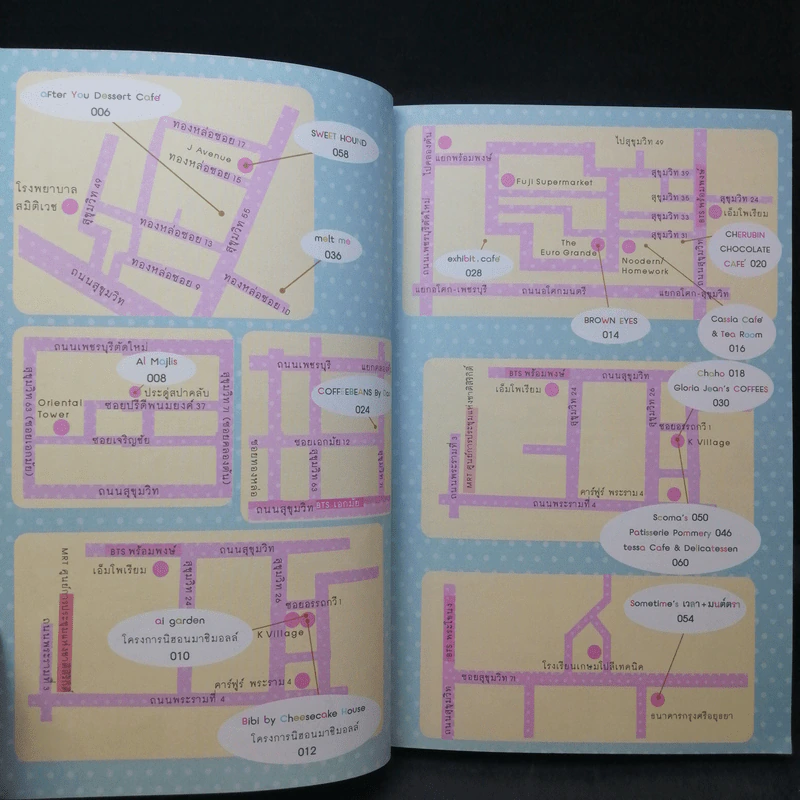 after You Dessert Café
006
ทองหล่อซอย 17
SWEET HOUND
058
J Avenue
ทองหล่อซอย 15
โรงพยาบาล
สมิติเวช
สุขุมวิท 49
สุขุมวิท 55
ทองหล่อซอย 13
melt me
036
ทองหล่อซอย 9
ทองหล่อซอย 10
ถนนสุขุมวิท
ถนนเพชรบุรีตัดใหม่
Al Majlis
008
ประตูสปาคลับ
ซอยปรีดีพนมยงค์ 37
Oriental
Tower
ซอยเจริญชัย
สุขุมวิท 63 (ซอยเอกมัย)
สุขุมวิท 71 (ซอยคลองตัน)
ถนนสุขุมวิท
ถนนเพชรบุรี
COFFEEBEANS By
024
ซอยเอกมัย 12
ซอยทองหล่อ
สุขุมวิท 63
ถนนสุขุมวิท
BTS เอกมัย
BTS พร้อมพงษ์
ถนนสุขุมวิท
เอ็มโพเรียม
MRT ศูนย์การประชุมแห่งชาติสิริกิติ์
ถนนพระรามที่ 3
สุขุมวิท 24
สุขุมวิท 26
ซอยอรรถกวี 1
al garden
โครงการนิฮอนมาชิมอลล์
010
K Village
คาร์ฟูร์ พระราม 4
ถนนพระรามที่ 4
Bibi by Cheesecake House
โครงการนิฮอนมาชิมอลล์
012
ไปคลองตัน
แยกพร้อมพงษ์
ไปสุขุมวิท 49
Fuji Supermarket
สุขุมวิท 39
สุขุมวิท 35
สุขุมวิท 33
สุขุมวิท 31
BTS พร้อมพงษ์
สุขุมวิท 24
เอ็มโพเรียม
ถนนเพชรบุรีตัดใหม่
The
Euro Grande
exhibit.café
028
Noodern/
Homework
CHERUBIN
CHOCOLATE
CAFÉ 020
ถนนสุขุมวิท
แยกอโศก-เพชรบุรี
ถนนอโศกมนตรี
แยกอโศก-สุขุมวิท
BROWN EYES
014
Cassia Café
& Tea Room
016
BTS พร้อมพงษ์
ถนนสุขุมวิท
เอ็มโพเรียม
Chaho 018
Gloria Jean's COFFEES
030
MRT ศูนย์การประชุมแห่งชาติสิริกิติ์
ถนนพระรามที่ 3
สุขุมวิท 24
สุขุมวิท 26
ซอยอรรถกวี 1
K Village
คาร์ฟูร์ พระราม 4
ถนนพระรามที่ 4
Scoma's 050
Patisserie Pommery 046
tessa Cafe & Delicatessen
060
Sometime's เวลา+มนต์ตรา
054
BTS พระโขนง
โรงเรียนเกษมโปลีเทคนิค
ซอยสุขุมวิท 71
ถนนสุขุมวิท
ธนาคารกรุงศรีอยุธยา